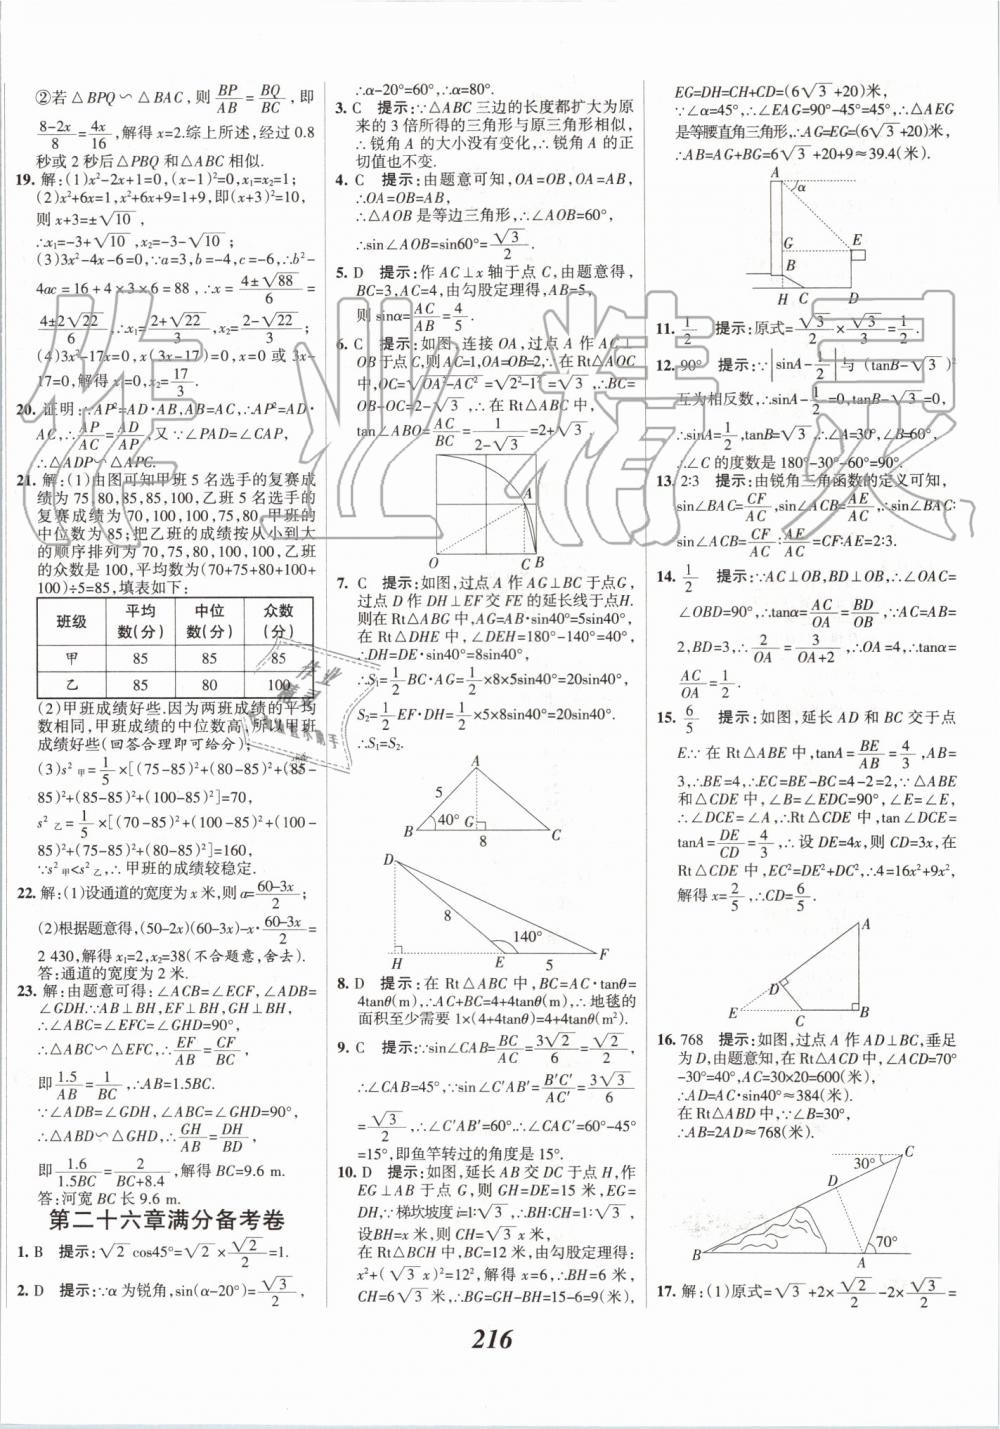 ②若△BPQ∽△BAC,则BP/AB=BQ/BC,即
8-2x/8=4x/16,解得x=2.综上所述,经过0.8
秒或2秒后△PBQ和△ABC相似.
19. 解:(1)x²-2x+1=0,(x-1)²=0,x₁=x₂=1;
(2)x²+6x=1,x²+6x+9=1+9,即(x+3)²=10,
则x+3=±√10,
∴x₁=-3+√10,x₂=-3-√10;
(3)3x²-4x-6=0,∵a=3,b=-4,c=-6,∴b²-
4ac=16+4×3×6=88,∴x=4±√88/6=
4±2√22/6,∴x₁=2+√22/3,x₂=2-√22/3;
(4)3x²-17x=0,x(3x-17)=0,x=0或3x-
17=0,解得x₁=0,x₂=17/3.
20. 证明:∵AP²=AD·AB,AB=AC,∴AP²=AD·
AC,∴AP/AC=AD/AP,又∵∠PAD=∠CAP,
∴△ADP∽△APC.
21. 解:(1)由图可知甲班5名选手的复赛成
绩为75,80,85,85,100,乙班5名选手的
复赛成绩为70,100,100,75,80,甲班的
中位数为85;把乙班的成绩按从小到大
的顺序排列为70,75,80,100,100,乙班
的众数是100,平均数为(70+75+80+100+
100)÷5=85,填表如下:
班级 平均数(分) 中位数(分) 众数(分)
甲 85 85 85
乙 85 80 100
(2)甲班成绩好些.因为两班成绩的平均
数相同,甲班成绩的中位数高,所以甲班
成绩好些(回答合理即可给分);
(3)s²甲=1/5×[(75-85)²+(80-85)²+(85-
85)²+(85-85)²+(100-85)²]=70,
s²乙=1/5×[(70-85)²+(100-85)²+(100-
85)²+(75-85)²+(80-85)²]=160,
∵s²甲<s²乙,∴甲班的成绩较稳定.
22. 解:(1)设通道的宽度为x米,则a=60-3x/2;
(2)根据题意得,(50-2x)(60-3x)-x·60-3x/2=
2 430,解得x₁=2,x₂=38(不合题意,舍去).
答:通道的宽度为2米.
23. 解:由题意可得:∠ACB=∠ECF,∠ADB=
∠GDH.∵AB⊥BH,EF⊥BH,GH⊥BH,
∴∠ABC=∠EFC=∠GHD=90°,
∴△ABC∽△EFC,∴EF/AB=CF/BC,
即1.5/AB=1/BC,∴AB=1.5BC.
∵∠ADB=∠GDH,∠ABC=∠GHD=90°,
∴△ABD∽△GHD,∴GH/AB=DH/BD,
即1.6/1.5BC=2/BC+8.4,解得BC=9.6 m.
答:河宽BC长9.6 m.
第二十六章满分备考卷
1. B 提示:√2cos45°=√2×√2/2=1.
2. D 提示:∵α为锐角,sin(α-20°)=√3/2,
∴α-20°=60°,∴α=80°.
3. C 提示:∵△ABC三边的长度都扩大为原
来的3倍所得的三角形与原三角形相似,
∴锐角A的大小没有变化,∴锐角A的正
切值也不变.
4. C 提示:由题意可知,OA=OB,OA=AB,
∴OA=OB=AB,
∴△AOB是等边三角形,∴∠AOB=60°,
∴sin∠AOB=sin60°=√3/2.
5. D 提示:作AC⊥x轴于点C,由题意得,
BC=3,AC=4,由勾股定理得,AB=5,
则sinα=AC/AB=4/5.
6. C 提示:如图,连接OA,过点A作AC⊥
OB于点C,则AC=1,OA=OB=2,∴在Rt△AOC
中,OC=√OA²-AC²=√2²-1²=√3,∴BC=
OB-OC=2-√3,∴在Rt△ABC中,
tan∠ABO=AC/BC=1/2-√3=2+√3.
A
O C B
7. C 提示:如图,过点A作AG⊥BC于点G,
过点D作DH⊥EF交FE的延长线于点H.
则在Rt△ABG中,AG=AB·sin40°=5sin40°,
在Rt△DHE中,∠DEH=180°-140°=40°,
∴DH=DE·sin40°=8sin40°,
∴S₁=1/2BC·AG=1/2×8×5sin40°=20sin40°,
S₂=1/2EF·DH=1/2×5×8sin40°=20sin40°.
∴S₁=S₂.
A
5
B 40° G C
8
D
8
140°
H E 5 F
8. D 提示:在Rt△ABC中,BC=AC·tanθ=
4tanθ(m),∴AC+BC=4+4tanθ(m),∴地毯的
面积至少需要1×(4+4tanθ)=4+4tanθ(m²).
9. C 提示:∵sin∠CAB=BC/AC=3√2/6=√2/2,
∴∠CAB=45°,∵sin∠C′AB′=B′C′/AC′=3√3/6
=√3/2,∴∠C′AB′=60°.∴∠CAC′=60°-45°
=15°,即鱼竿转过的角度是15°.
10. D 提示:如图,延长AB交DC于点H,作
EG⊥AB于点G,则GH=DE=15米,EG=
DH,∵梯坎坡度i=1:√3,∴BH:CH=1:√3,
设BH=x米,则CH=√3x米,
在Rt△BCH中,BC=12米,由勾股定理得:
x²+(√3x)²=12²,解得x=6,∴BH=6米,
CH=6√3米,∴BG=GH-BH=15-6=9(米),
EG=DH=CH+CD=(6√3+20)米,
∵∠α=45°,∴∠EAG=90°-45°=45°,∴△AEG
是等腰直角三角形,∴AG=EG=(6√3+20)米,
∴AB=AG+BG=6√3+20+9≈39.4(米).
A
α
G E
B
H C D
11. 1/2 提示:原式=√3/2×√3/3=1/2.
12. 90° 提示:∵|sinA-1/2|与(tanB-√3)²
互为相反数,∴sinA-1/2=0,tanB-√3=0,
∴sinA=1/2,tanB=√3,∴∠A=30°,∠B=60°,
∴∠C的度数是180°-30°-60°=90°.
13. 2:3 提示:由锐角三角函数的定义可知,
sin∠BAC=CF/AC,sin∠ACB=AE/AC,∴sin∠BAC:
sin∠ACB=CF/AC:AE/AC=CF:AE=2:3.
14. 1/2 提示:∵AC⊥OB,BD⊥OB,∴∠OAC=
∠OBD=90°,∴tanα=AC/OA=BD/OB,∵AC=AB=
2,BD=3,∴2/OA=3/OA+2,∴OA=4,∴tanα=
AC/OA=1/2.
15. 6/5 提示:如图,延长AD和BC交于点
E∵在Rt△ABE中,tanA=BE/AB=4/3,AB=
3,∴BE=4,∴EC=BE-BC=4-2=2,∵△ABE
和△CDE中,∠B=∠EDC=90°,∠E=∠E,
∴∠DCE=∠A,∴Rt△CDE中,tan∠DCE=
tanA=DE/CD=4/3,∴设DE=4x,则CD=3x,在
Rt△CDE中,EC²=DE²+DC²,∴4=16x²+9x²,
解得x=2/5,∴CD=6/5.
A
D
E C B
16. 768 提示:如图,过点A作AD⊥BC,垂足
为D,由题意知,在Rt△ACD中,∠ACD=70°
-30°=40°,AC=30×20=600(米),
∴AD=AC·sin40°≈384(米).
在Rt△ABD中,∵∠B=30°,
∴AB=2AD≈768(米).
C
30°
D
70°
B A
17. 解:(1)原式=√3+2×√2/2-2×√3/2=
216
作业精灵